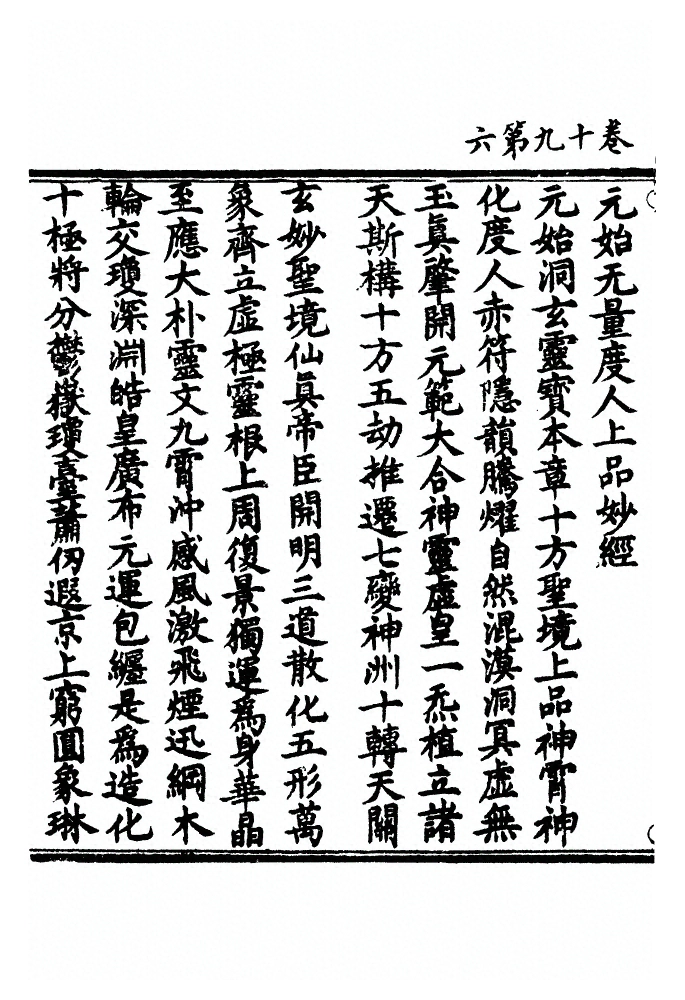 卷十九第六
元始无量度人上品妙經
元始洞玄靈寶本章十方聖境上品神霄神
化度人赤符隱韻騰耀自然混漠洞冥虛無
玉真肇開元範大合神靈虛皇一炁植立諸
天斯構十方五劫推遷七變神洲十轉天關
玄妙聖境仙真帝臣開明三道散化五形萬
象齊立虛極靈根上周復景獨運爲身華晶
至應大朴靈文九霄沖感風激飛煙迅綱木
輪交瓊深淵皓皇廣布元運包纏是爲造化
十極將分鬱嶽瓊臺蕭仞遐京上窮圓象琳